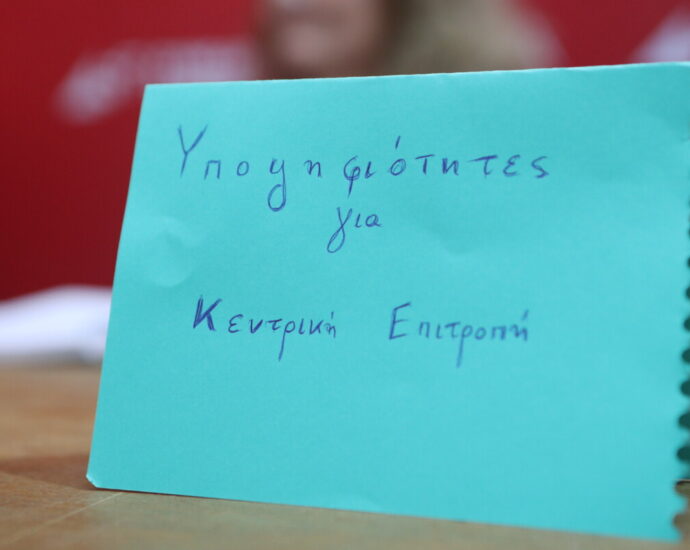 Υποψηφιότητες
για
Κεντρική Επιτροπή